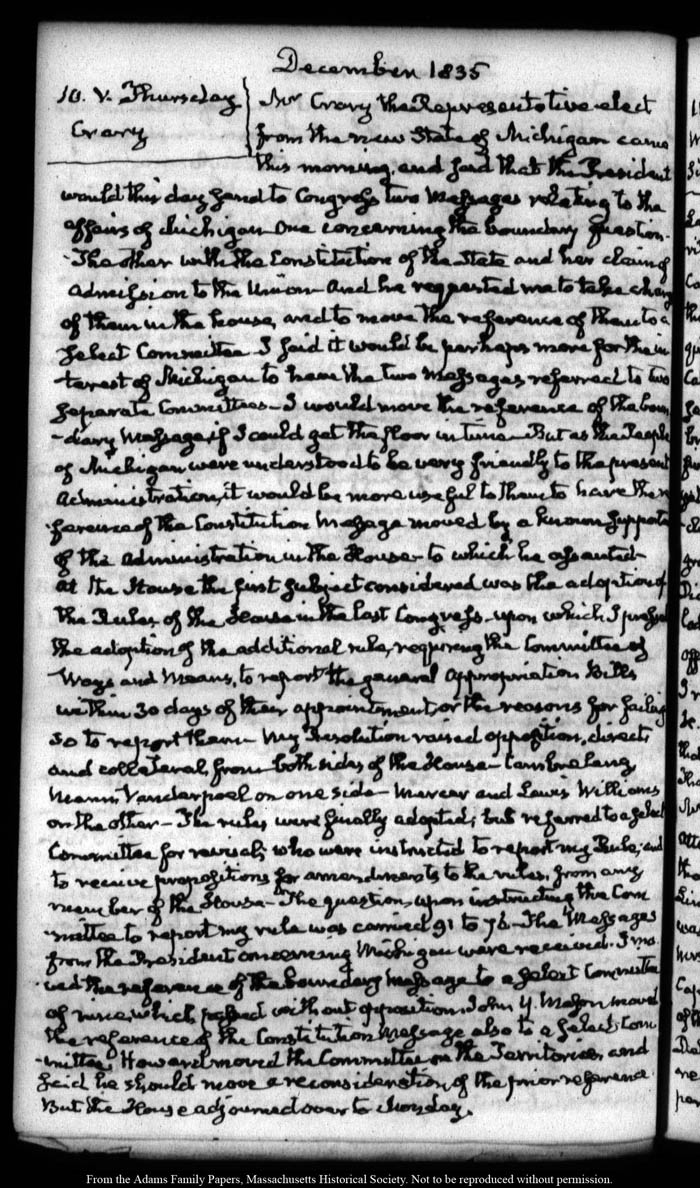 December 1835
10. V. Thursday
Crary
Mr Crary the Representative elect
from the new State of Michigan came
this morning, and said that the President
would this day send to Congress two Messages relating to the
affairs of Michigan One concerning the boundary question.
The other with the Constitution of the State and her claim of
admission to the Union And he requested me to take charge
of them in the house, and to move the reference of them to a
select Committee I said it would be perhaps more for the in
terest of Michigan to have the two Messages referred to two
separate Committees I would move the reference of the boun
-dary Message if I could get the floor in time But as the People
of Michigan were understood to be very friendly to the present
administration, it would be more useful to them to have the re
ference of the Constitution Message moved by a known supporter
of the administration in the House to which he assented
At the House the first subject considered was the adoption of
the Rules of the House in the last Congress upon which I
the adoption of the additional rule, requiring the Committee of
Ways and Means, to report the general Appropriation Bills
within 30 days of their appointment or the reasons for failing
so to report them My Resolution raised opposition, direct
and collateral, from both sides of the House Cambreleng
Mann, Vanderpoel on one side Mercer and Lewis Williams
on the other The rules were finally adopted; but referred to a select
Committee for revisal; who were instructed to report my Rule; and
to receive propositions for amendments to the rules, from any
member of the House The question, upon instructing the Com
mittee to report my rule was carried 91 to The Messages
from the President concerning Michigan were received. I mo
ved the reference of the boundary Message to a select Committee
of nine, which passed without opposition John Y. Mason moved
the reference of the Constitution Message also to a select Com
-mittee, Howard moved the Committee on the Territories, and
said he should move a reconsideration of the prior reference
But the House adjourned over to Monday.
From the Adams Family Papers, Massachusetts Historical Society. Not to be reproduced without permission.